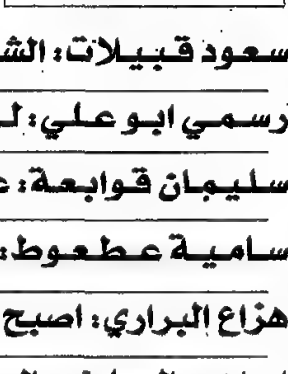 سعود قبيلات: الش
رسمي ابو علي: لـ
سليمان قوابعة: عـ
سامية عطعوط:
هزاع البراري: اصبح